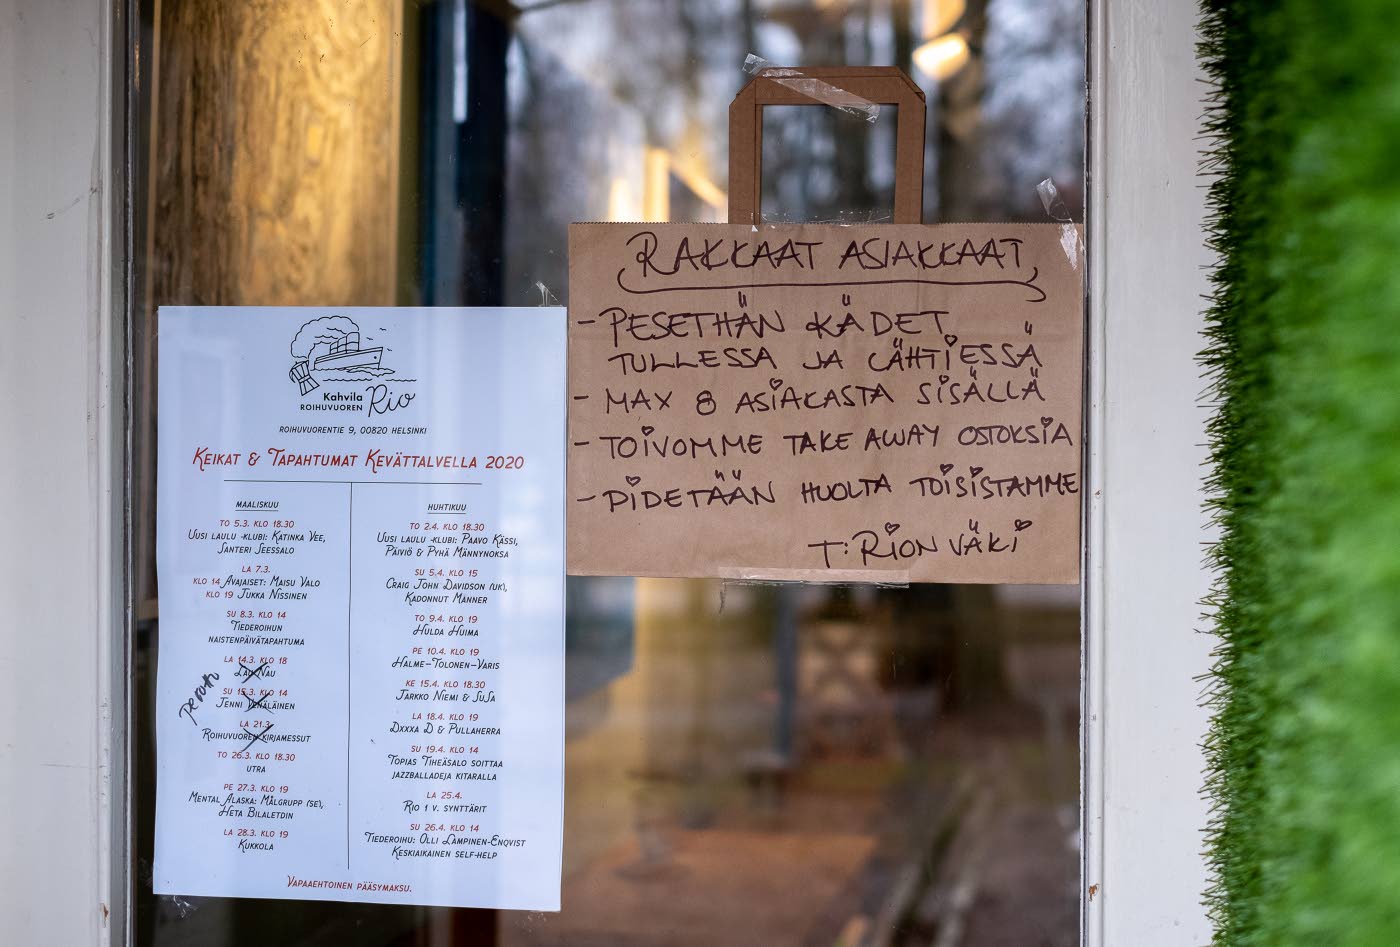 Kahvila
ROIHUVUOREN Rio
ROIHUVUORENTIE 9, 00820 HELSINKI
KEIKAT & TAPAHTUMAT KEVÄTTALVELLA 2020
MAALISKUU
TO 5.3. KLO 18.30
UUSI LAULU -KLUBI: KATINKA VEE,
SANTERI SEESSALO
LA 7.3.
KLO 14 AVAJAISET: MAISU VALO
KLO 19 JUKKA NISSINEN
SU 8.3. KLO 14
TIEDEROIHUN
NAISTENPÄIVÄTAPAHTUMA
LA 14.3. KLO 18
LAU NAU
SU 15.3. KLO 14
JENNI VENÄLÄINEN
peruttu
LA 21.3.
ROIHUVUOREN KIRJAMESSUT
TO 26.3. KLO 18.30
UTRA
PE 27.3. KLO 19
MENTAL ALASKA: MÅLGRUPP (SE),
HETA BILALETDIN
LA 28.3. KLO 19
KUKKOLA
HUHTIKUU
TO 2.4. KLO 18.30
UUSI LAULU -KLUBI: PAAVO KÄSSI,
PÄIVIÖ & PYHÄ MÄNNYNOKSA
SU 5.4. KLO 15
CRAIG JOHN DAVIDSON (UK),
KADONNUT MANNER
TO 9.4. KLO 19
HULDA HUIMA
PE 10.4. KLO 19
HALME-TOLONEN-VARIS
KE 15.4. KLO 18.30
JARKKO NIEMI & SUSA
LA 18.4. KLO 19
DXXXA D & PULLAHERRA
SU 19.4. KLO 14
TOPIAS TIHEÄSALO SOITTAA
JAZZBALLADEJA KITARALLA
LA 25.4.
RIO 1 V. SYNTTÄRIT
SU 26.4. KLO 14
TIEDEROIHU: OLLI LAMPINEN-ENQVIST
KESKIAIKAINEN SELF-HELP
VAPAAEHTOINEN PÄÄSYMAKSU.
RAKKAAT ASIAKKAAT,
- PESETHÄN KÄDET
TULLESSA JA LÄHTIESSÄ
- MAX 8 ASIAKASTA SISÄLLÄ
- TOIVOMME TAKE AWAY OSTOKSIA
- PIDETÄÄN HUOLTA TOISISTAMME
T: RION VÄKI